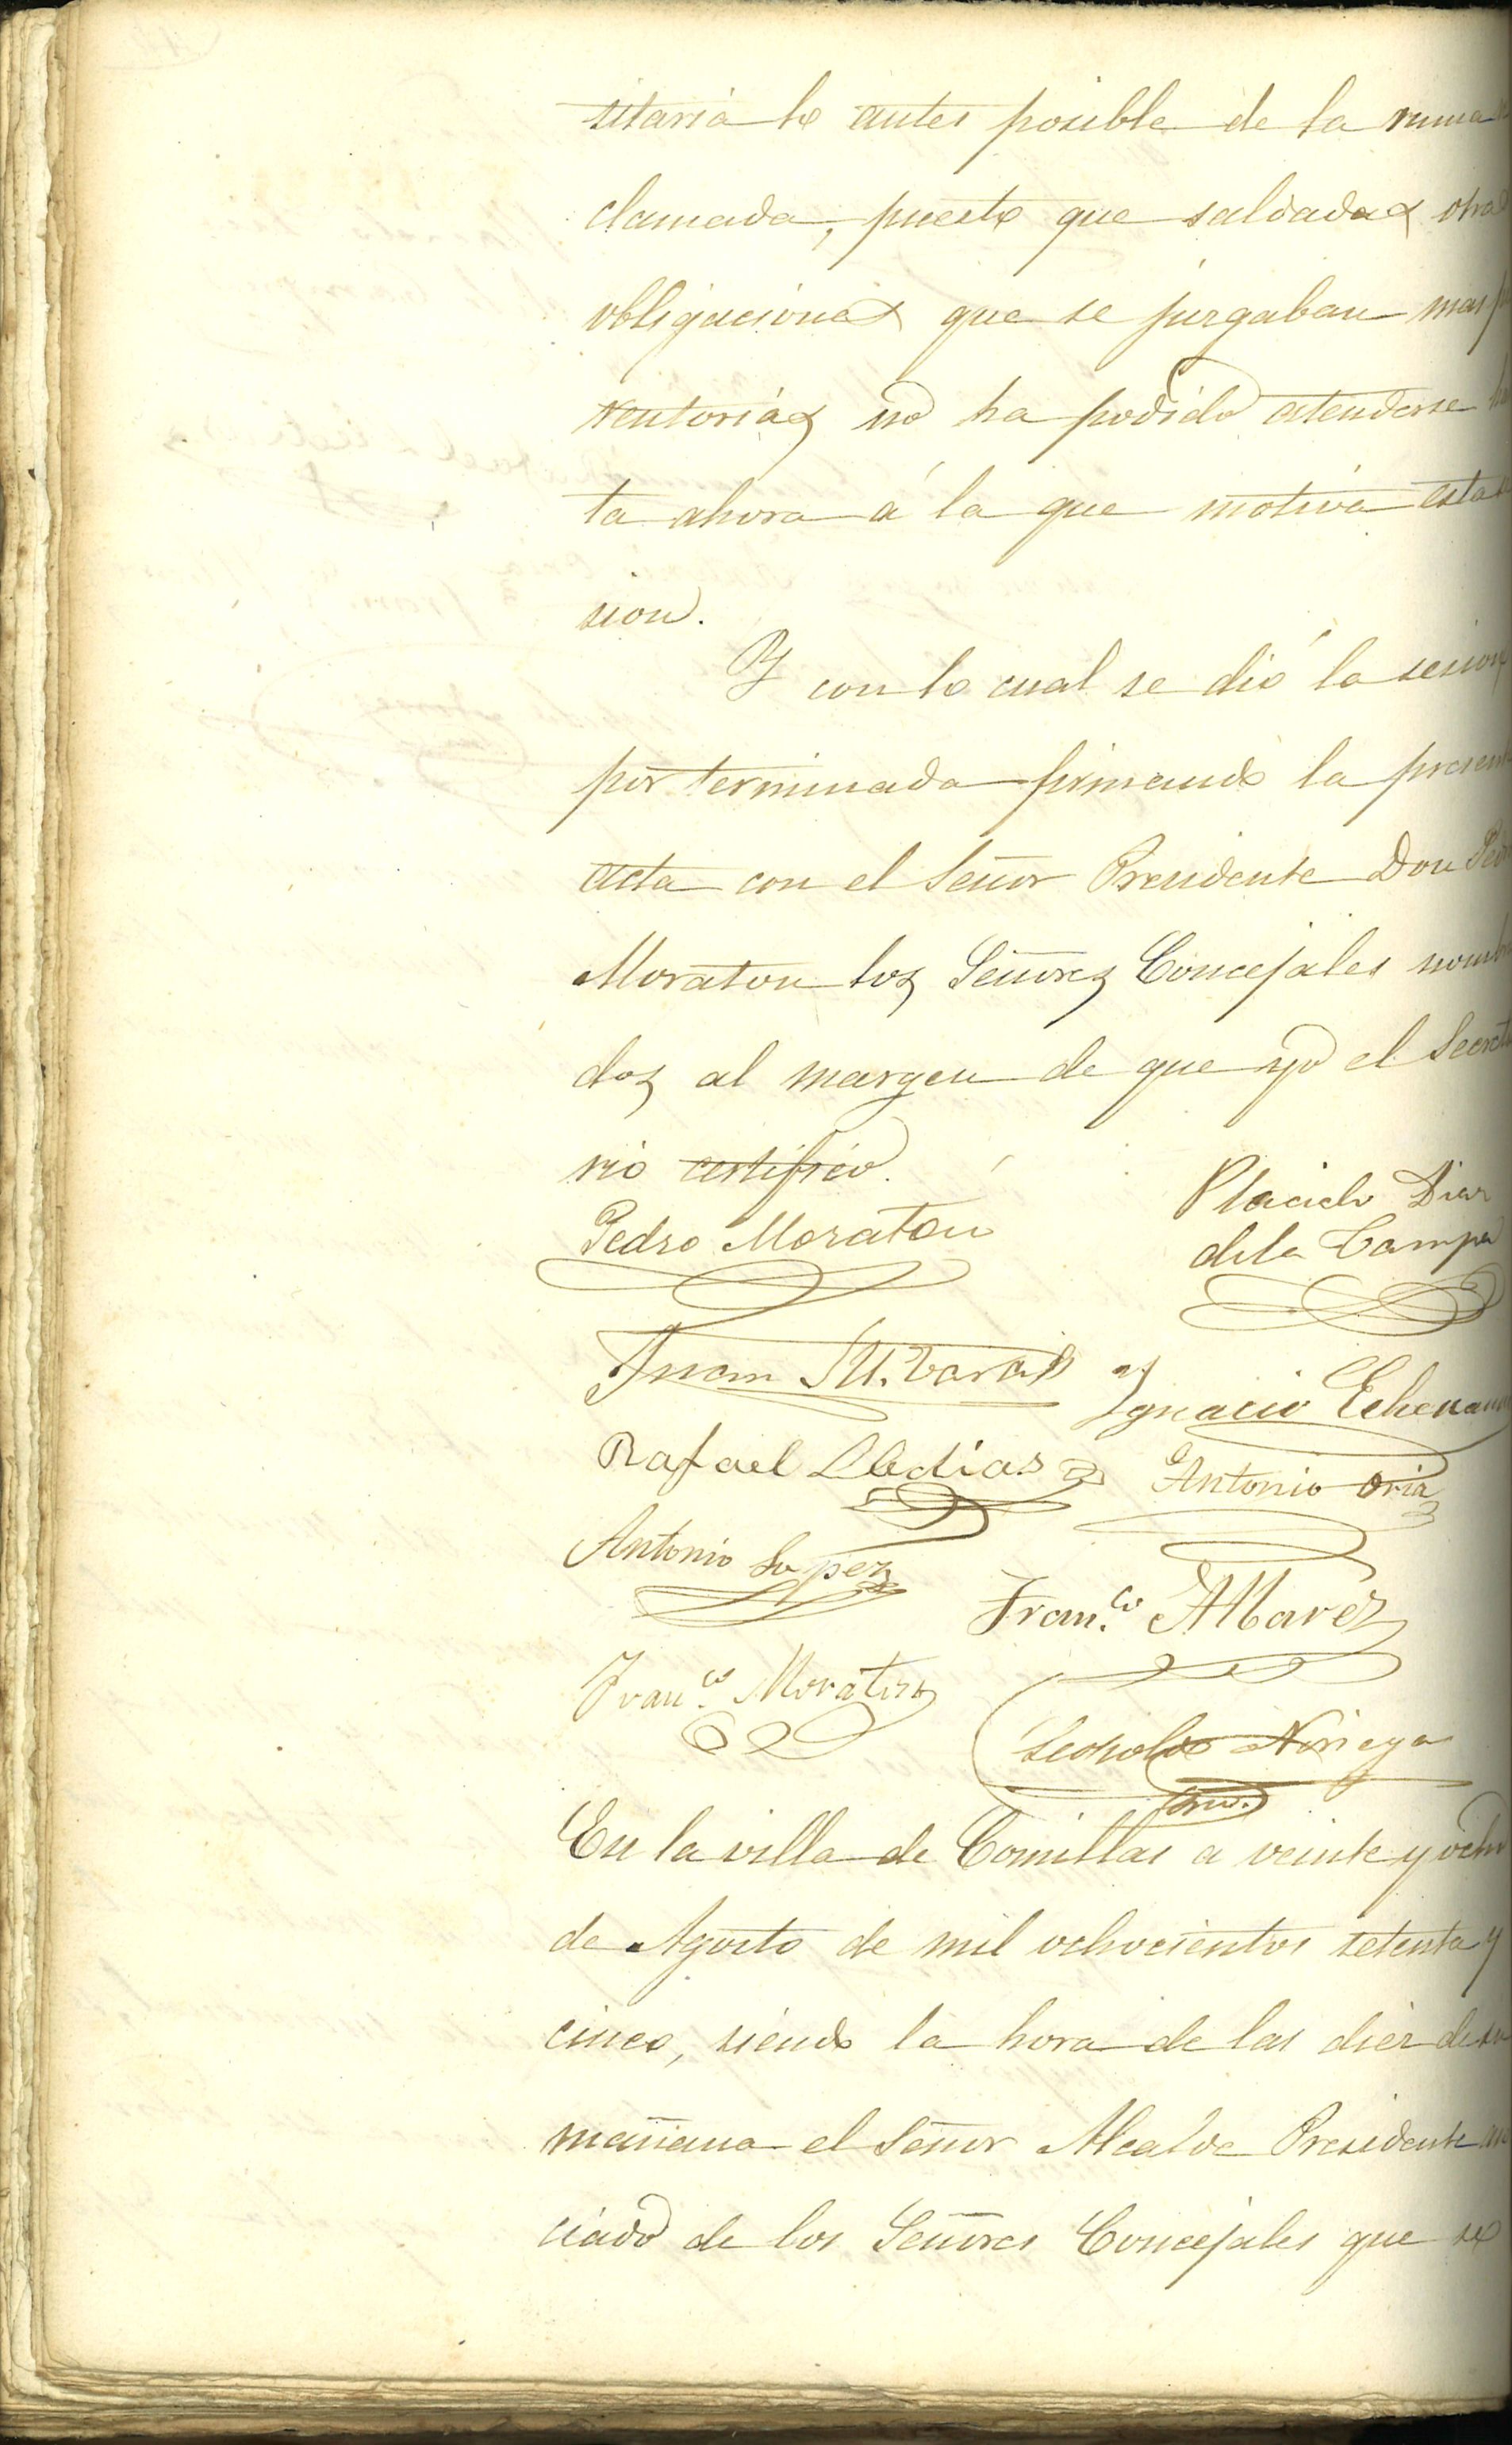 sitaria lo antes posible de la suma
clamada, puesto que saldadas otra
obligaciones que se jurgaban mas p
rentorias no ha podido atenderse ha
ta ahora á la que motiva esta
sion.
Y con lo cual se dió la sesion
por terminada firmando la presen
acta con el Señor Presidente Don Ped
Moraton los Señores Concejales nomb
dos al margen de que yo el Secreta
rio certifico.
Pedro Moraton
Placido Diaz
de la Campa
Juan M.
Ignacio
Rafael
Antonio Oria
Antonio Lopez
Fran.co Albarez
Fran.co Moraton
Leopoldo Noriega
Srio.
En la villa de Comillas a veinte y ocho
de Agosto de mil ochocientos setenta y
cinco, siendo la hora de las diez de su
mañana el Señor Alcalde Presidente aso
ciado de los Señores Concejales que se